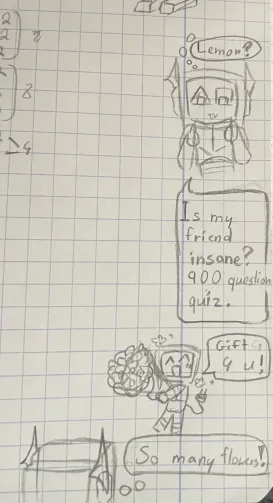 2
2
8
8
≥4
Lemon?
TV
Is my
friend
insane?
900 question
quiz.
Gift
4 u!
So many flowers!